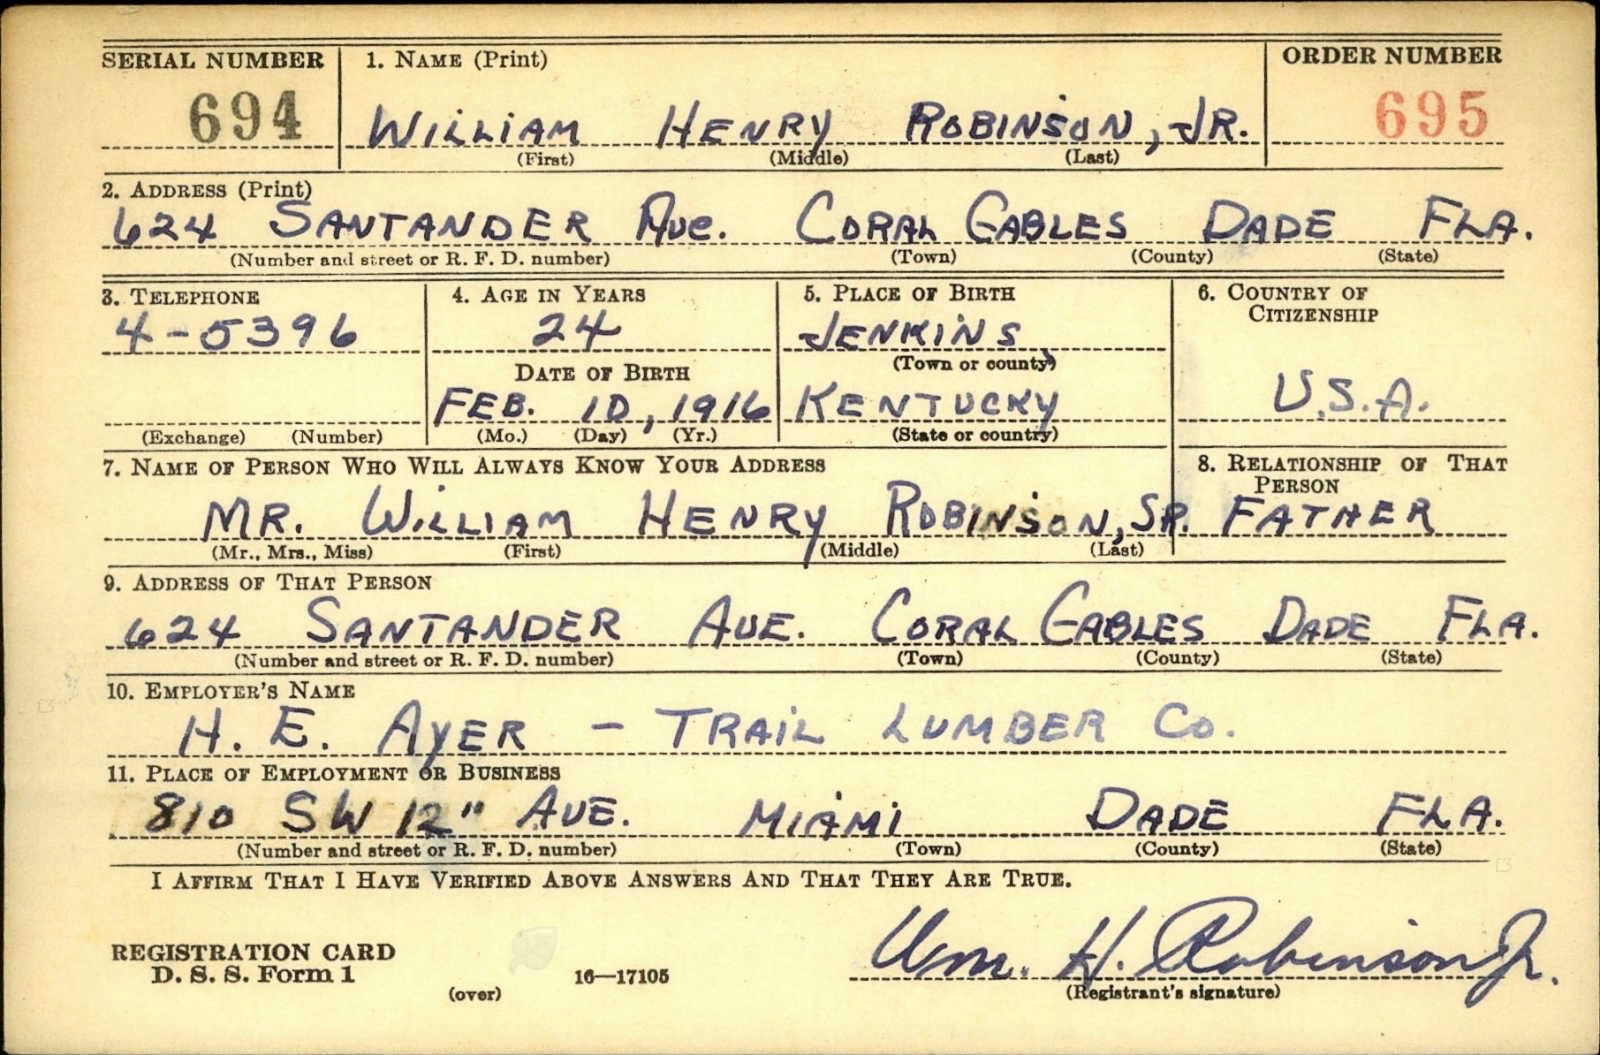 SERIAL NUMBER 1. NAME (Print) ORDER NUMBER
694 WILLIAM HENRY ROBINSON, JR. 695
(First) (Middle) (Last)
2. ADDRESS (Print)
624 SANTANDER AVE. CORAL GABLES DADE FLA.
(Number and street or R. F. D. number) (Town) (County) (State)
3. TELEPHONE 4. AGE IN YEARS 5. PLACE OF BIRTH 6. COUNTRY OF CITIZENSHIP
4-5396 24 JENKINS
(Town or county)
DATE OF BIRTH
FEB. 10, 1916 KENTUCKY U.S.A.
(Exchange) (Number) (Mo.) (Day) (Yr.) (State or country)
7. NAME OF PERSON WHO WILL ALWAYS KNOW YOUR ADDRESS 8. RELATIONSHIP OF THAT PERSON
MR. WILLIAM HENRY ROBINSON, SR. FATHER
(Mr., Mrs., Miss) (First) (Middle) (Last)
9. ADDRESS OF THAT PERSON
624 SANTANDER AVE. CORAL GABLES DADE FLA.
(Number and street or R. F. D. number) (Town) (County) (State)
10. EMPLOYER'S NAME
H. E. AYER - TRAIL LUMBER CO.
11. PLACE OF EMPLOYMENT OR BUSINESS
810 SW 12" AVE. MIAMI DADE FLA.
(Number and street or R. F. D. number) (Town) (County) (State)
I AFFIRM THAT I HAVE VERIFIED ABOVE ANSWERS AND THAT THEY ARE TRUE.
REGISTRATION CARD Wm. H. Robinson Jr.
D. S. S. Form 1 16—17105
(over) (Registrant's signature)